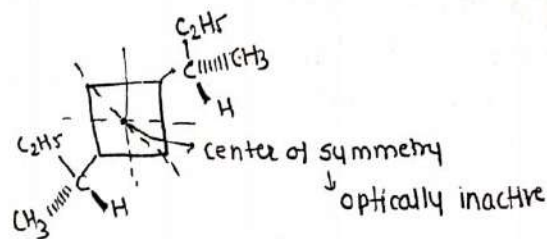 C2H5
C CH3
H
C2H5
C
CH3 H
center of symmetry
optically inactive